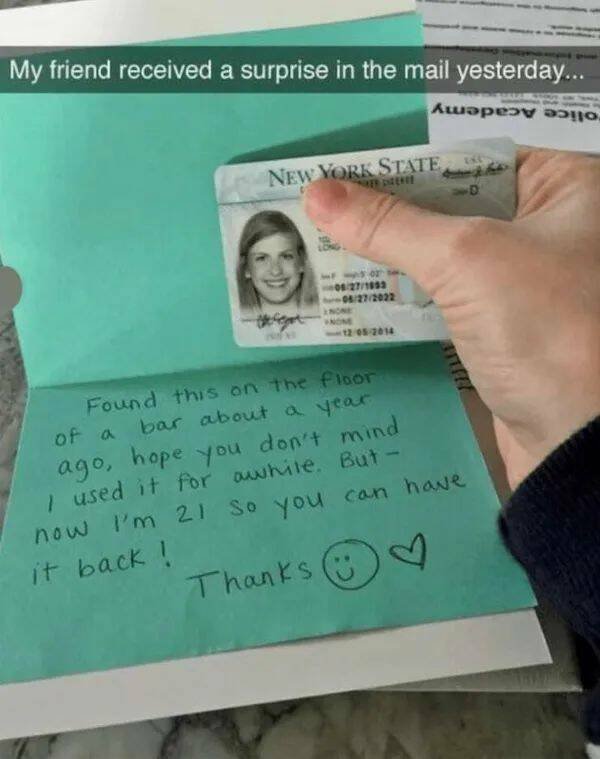 My friend received a surprise in the mail yesterday...
olice Academy
NEW YORK STATE
USA
D
LONG
06/27/1993
06/27/2022
NONE
NONE
12-05-2014
Found this on the floor
of a bar about a year
ago, hope you don't mind
I used it for awhile. But -
now I'm 21 so you can have
it back !
Thanks